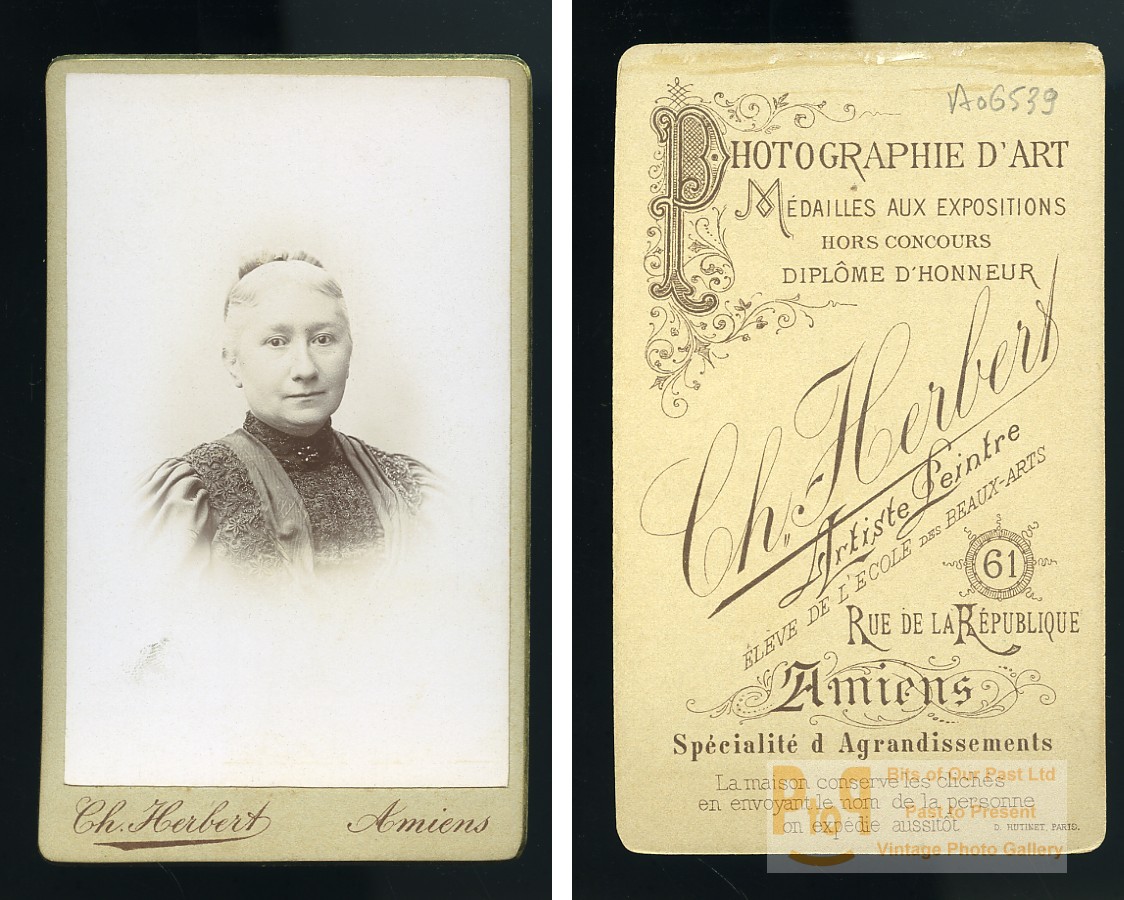 Ch. Herbert Amiens
A06539
PHOTOGRAPHIE D'ART
MÉDAILLES AUX EXPOSITIONS
HORS CONCOURS
DIPLÔME D'HONNEUR
Ch. Herbert
Artiste Peintre
ÉLÈVE DE L'ECOLE DES BEAUX-ARTS
61
RUE DE LA RÉPUBLIQUE
Amiens
Spécialité d Agrandissements
La maison conserve les clichés
en envoyant le nom de la personne
on expédie aussitôt
D. HUTINET. PARIS.
PtoP
Bits of Our Past Ltd
Past to Present
Vintage Photo Gallery